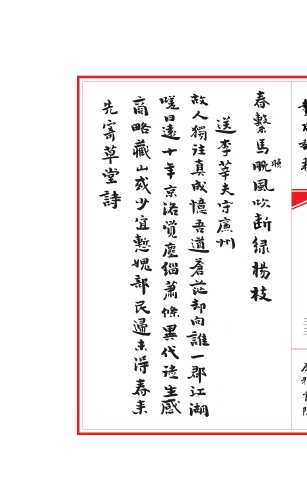 春繫馬晚風吹斷綠楊枝
曉
送李莘夫守廉州
故人獨往真成憶吾道蒼茫却向誰一郡江湖
嗟日遠十年京洛覺塵緇蕭條異代途生感
商略藏山或少宜慙愧部民遍未得春來
先寄草堂詩